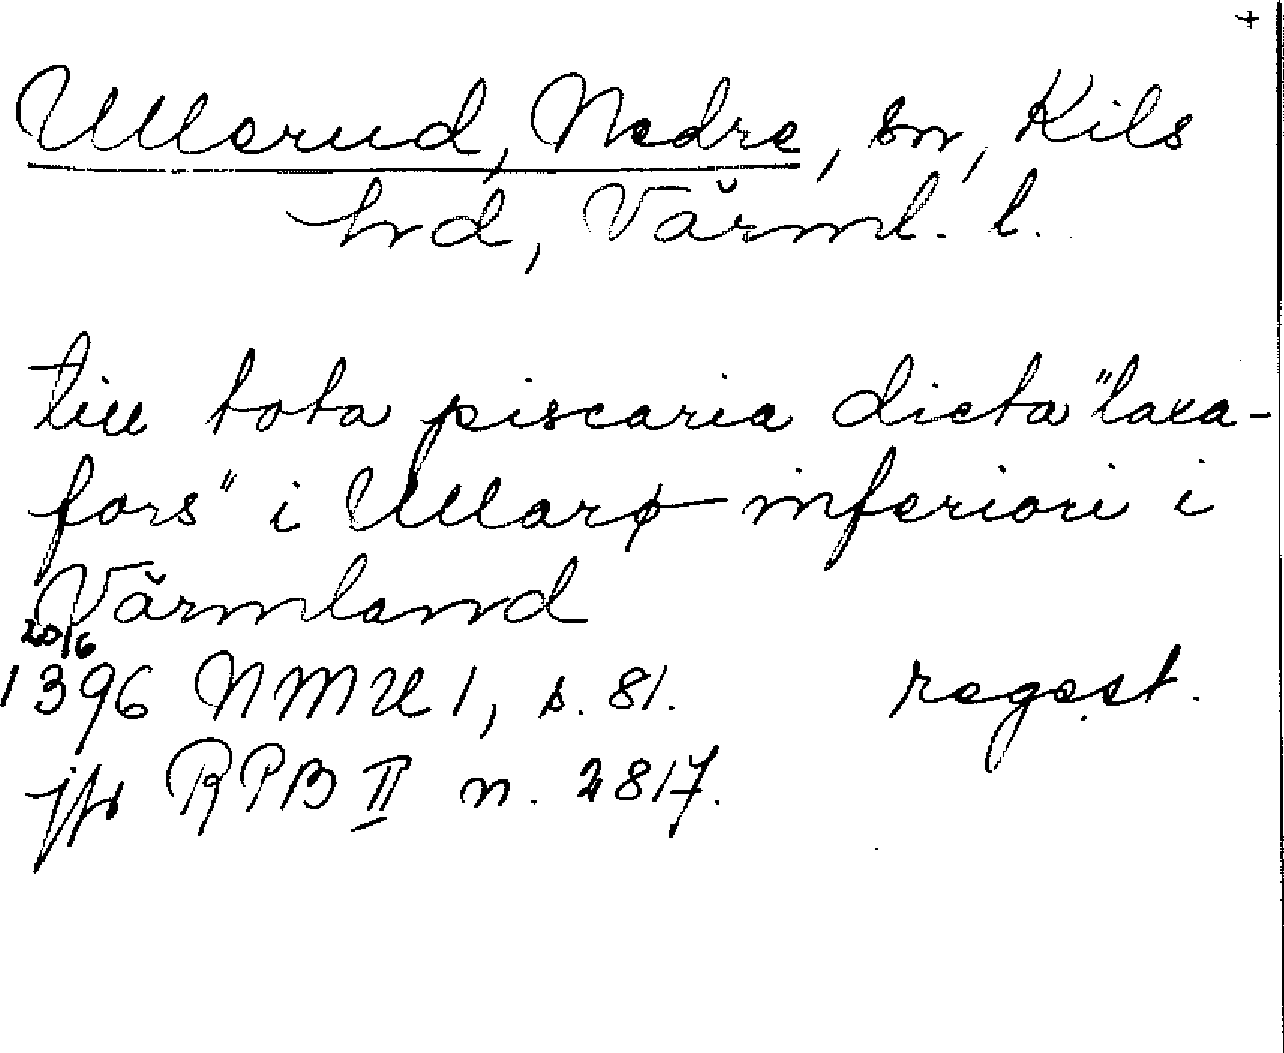 +
Ullerud, Nedre, sn, Kils
hd, Värml. l.
till tota piscaria dicta "laxa-
fors" i Ullarø inferiori i
Värmland
20/6
1396 NMU 1, s. 81. regest.
jfr RPB II n. 2817.